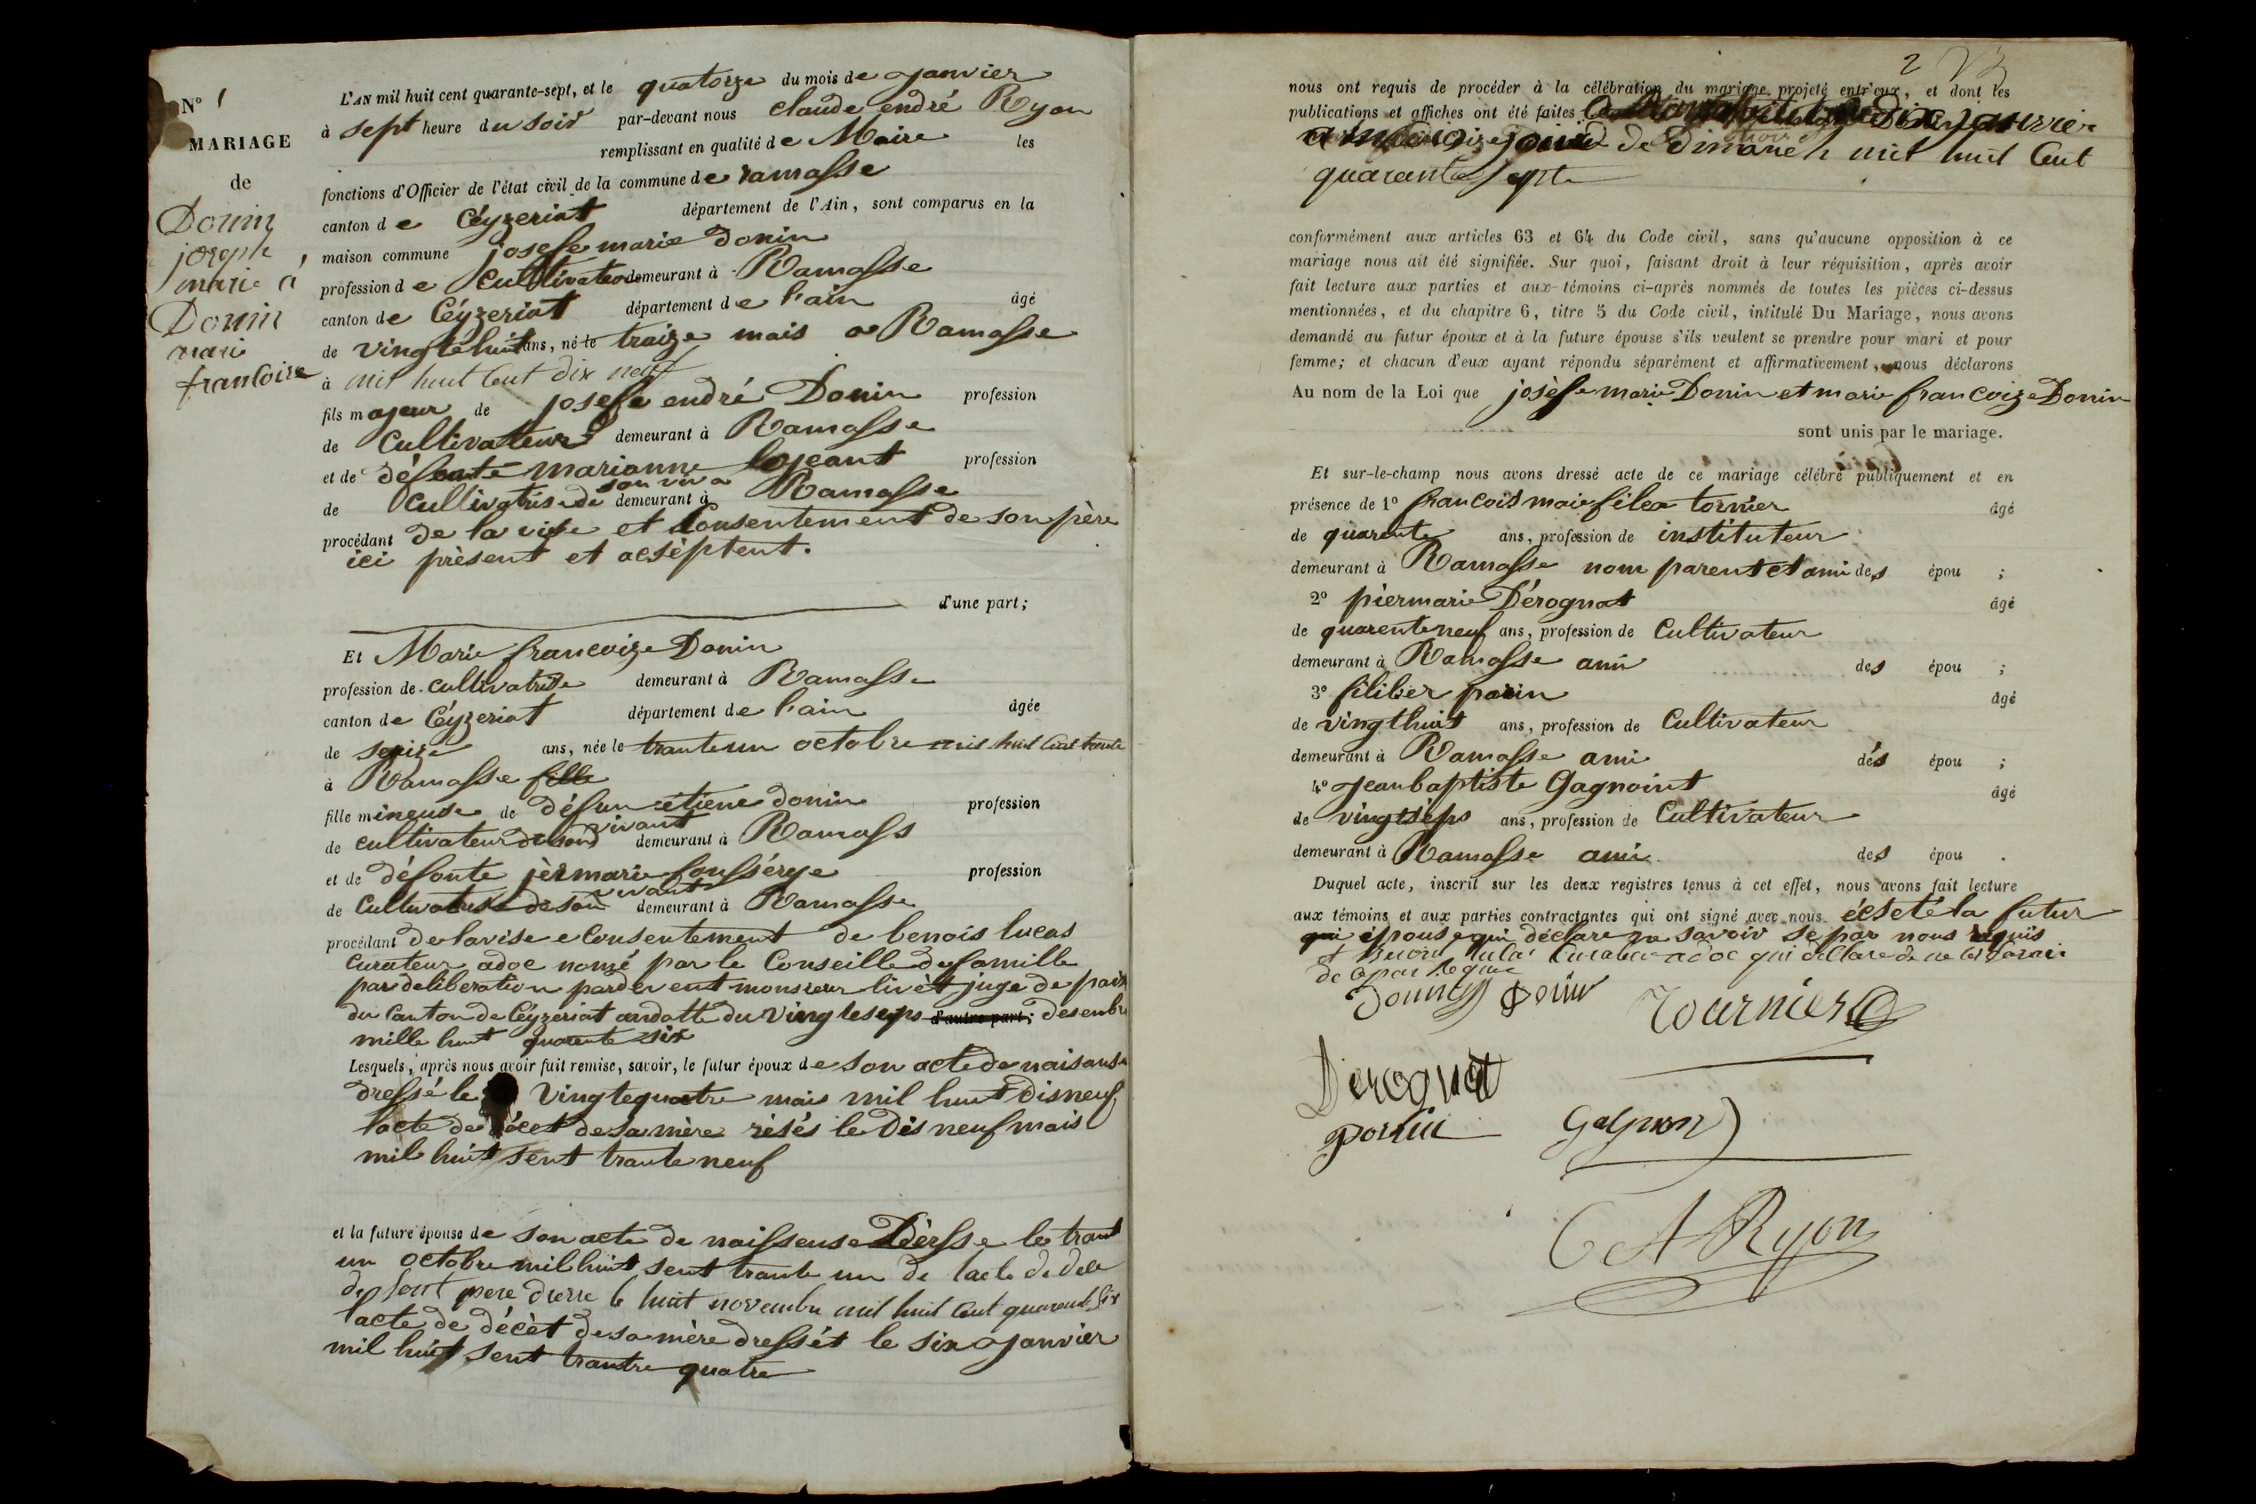 N° 1
MARIAGE
de
Donin
joseph
marie à
Donin
mari
francoise
L'AN mil huit cent quarante-sept, et le quatorze du mois de janvier
à sept heure du soir par-devant nous claude endré Ryon
remplissant en qualité de Maire les
fonctions d'Officier de l'état civil de la commune de ramasse
canton de Céyzeriat département de l'Ain, sont comparus en la
maison commune josefe marie donin
profession de cultivateur demeurant à Ramasse
canton de Céyzeriat département de l'ain âgé
de vingtehuit ans, né le traize mais a Ramasse
à mil huit Cent dix neuf
fils majeur de josefe endré Donin profession
de Cultivateur demeurant à Ramasse
et de défeute marianne lojeant profession
de Cultivatrise de son viva demeurant à Ramasse
procédant de la vise et Consentement de son père
ici prèsent et acsèptent.
d'une part;
Et Marie francoize Donin
profession de cultivatrise demeurant à Ramasse
canton de Céyzeriat département de l'ain âgée
de seize ans, née le trante un octobre mil huit Cent trante
à Ramasse fille
fille mineuse de défun étiene donin profession
de cultivateur de son vivant demeurant à Ramass
et de défonte jèrmarie foussérye profession
de Cultivatrise de son vivant demeurant à Ramasse
procédant de lavise e Consentement de benois lucas
Curateur adoc nomé par le Conseille de famille
par deliberation pardevent monsieur livèt juge de paix
du Canton de Céyzeriat andatte du vingteseps d'autre part; desenbre
mille huit quarente six
Lesquels, après nous avoir fait remise, savoir, le futur époux de son acte de naisanse
dressé le vingtequatre mais mil huit disneuf
lacte de décet de sa mère risés le Dis neuf mais
mil huit sent trante neuf
et la future épouse de son acte de naissense Dèrsse le trant
un octobre mil huit sent trante un de lacte de dece
de font pere dresse le huit novembre mil huit Cent quarant six
lacte de décèt de sa mère dressét le six janvier
mil huit sent trantre quatre
2
nous ont requis de procéder à la célébration du mariage projeté entr'eux, et dont les
publications et affiches ont été faites dix janvier
jour de Dimanch mil huit Cent
quarante septe
conformément aux articles 63 et 64 du Code civil, sans qu'aucune opposition à ce
mariage nous ait été signifiée. Sur quoi, faisant droit à leur réquisition, après avoir
fait lecture aux parties et aux témoins ci-après nommés de toutes les pièces ci-dessus
mentionnées, et du chapitre 6, titre 5 du Code civil, intitulé Du Mariage, nous avons
demandé au futur époux et à la future épouse s'ils veulent se prendre pour mari et pour
femme; et chacun d'eux ayant répondu séparément et affirmativement, nous déclarons
Au nom de la Loi que josèfe marie Donin et marie francoize Donin
sont unis par le mariage.
Et sur-le-champ nous avons dressé acte de ce mariage célébré publiquement et en
présence de 1° francois maie filea tornier âgé
de quarente ans, profession de instituteur
demeurant à Ramasse nom parent et ami des épou ;
2° pièrmarie Dérognat âgé
de quarenteneuf ans, profession de Cultivateur
demeurant à Ramasse ami des épou ;
3° filiber porin âgé
de vingthuit ans, profession de Cultivateur
demeurant à Ramasse ami dés épou ;
4° Jeanbaptiste Gagnoint âgé
de vingtseps ans, profession de Cultivateur
demeurant à Ramasse ami des épou .
Duquel acte, inscrit sur les deux registres tenus à cet effet, nous avons fait lecture
aux témoins et aux parties contractantes qui ont signé avec nous écseté la futur
qui épouse qui déclare ne savoir se par nous requis
Curateur adoc qui déClare de ne le savoir
de ce par requie
Donin Donin Tournier
Derognat
porin Gagnon
C A Ryon